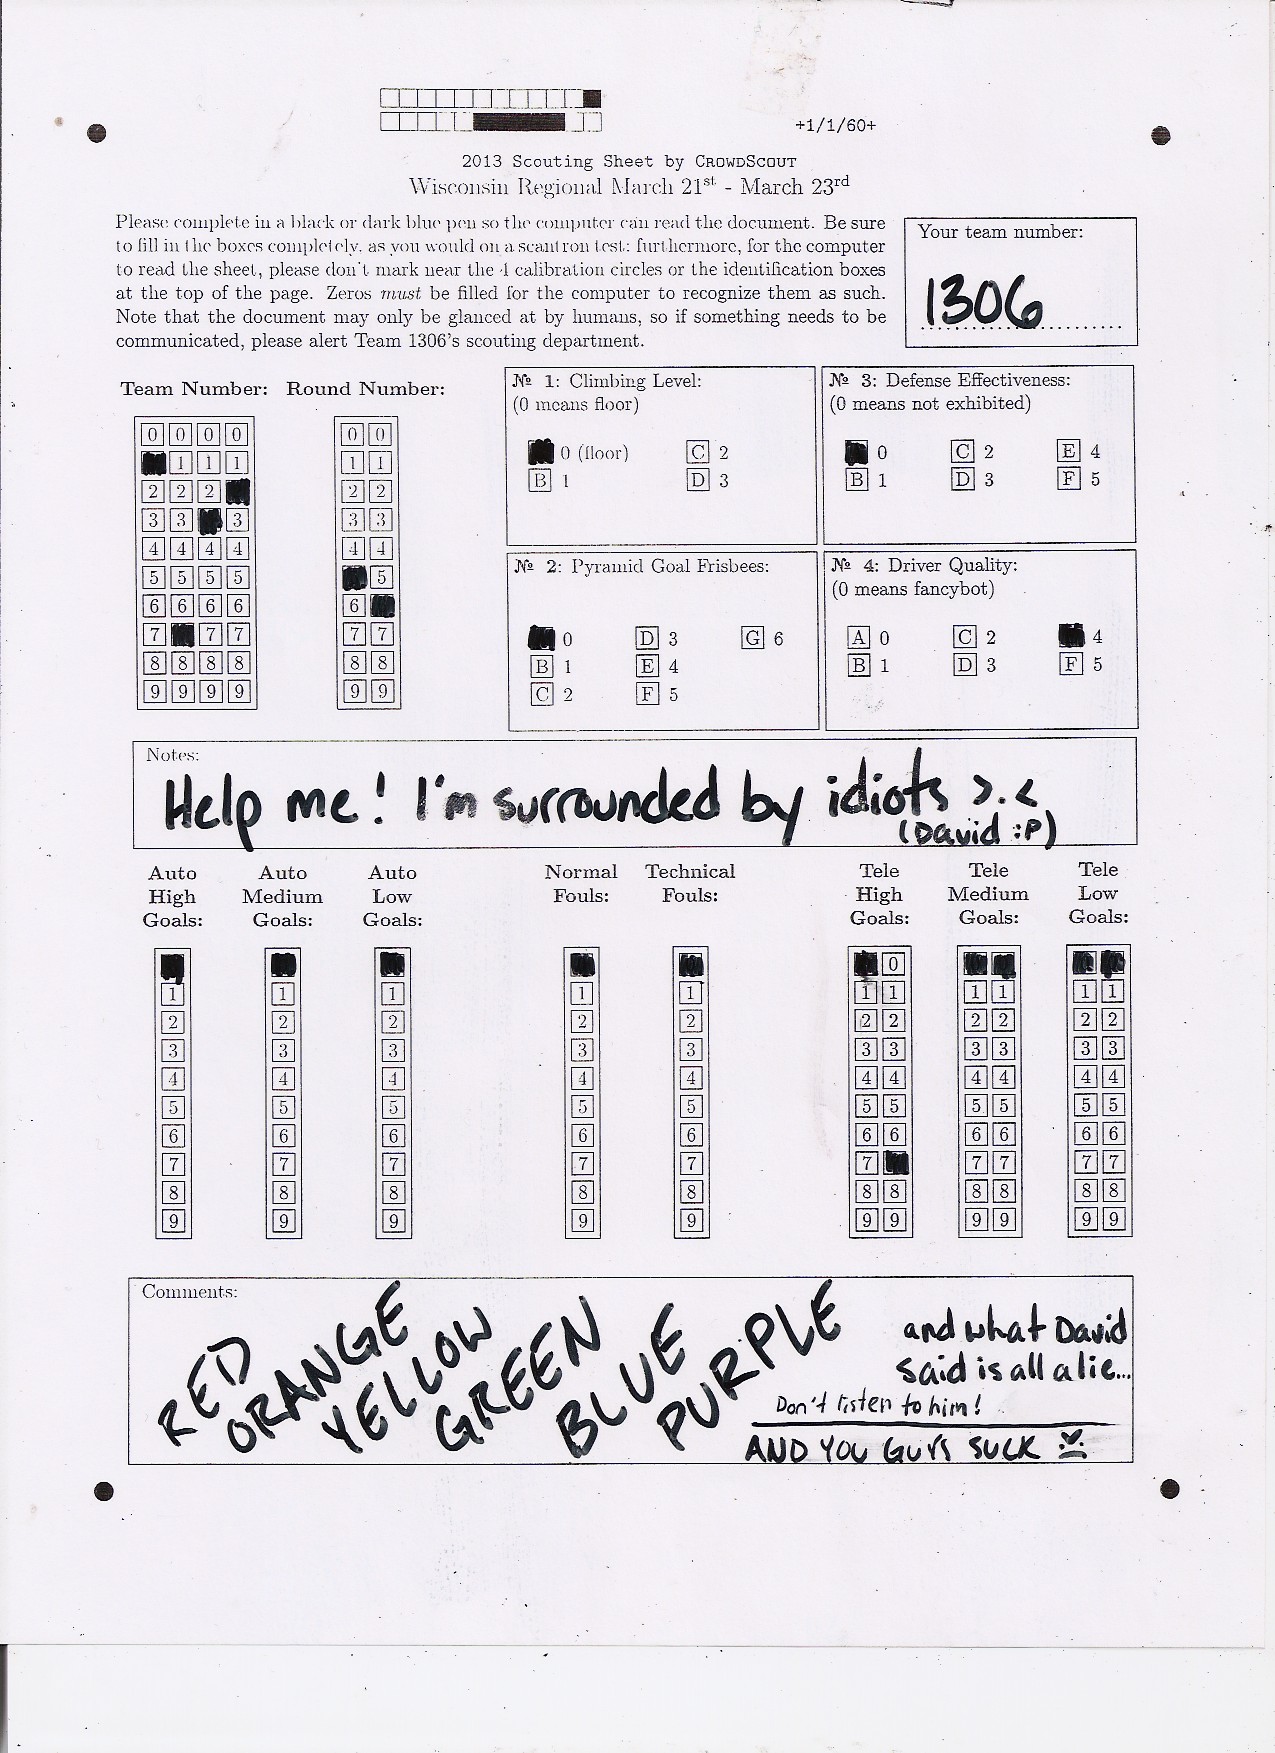 +1/1/60+
2013 Scouting Sheet by CROWDSCOUT
Wisconsin Regional March 21st - March 23rd
Please complete in a black or dark blue pen so the computer can read the document. Be sure
to fill in the boxes completely, as you would on a scantron test; furthermore, for the computer
to read the sheet, please don't mark near the 4 calibration circles or the identification boxes
at the top of the page. Zeros must be filled for the computer to recognize them as such.
Note that the document may only be glanced at by humans, so if something needs to be
communicated, please alert Team 1306's scouting department.
Your team number:
1306
Team Number: Round Number:
0 0 0 0 0 0
1 1 1 1 1
2 2 2 2 2
3 3 3 3 3
4 4 4 4 4 4
5 5 5 5 5
6 6 6 6 6
7 7 7 7 7
8 8 8 8 8 8
9 9 9 9 9 9
№ 1: Climbing Level:
(0 means floor)
0 (floor) C 2
B 1 D 3
№ 3: Defense Effectiveness:
(0 means not exhibited)
0 C 2 E 4
B 1 D 3 F 5
№ 2: Pyramid Goal Frisbees:
0 D 3 G 6
B 1 E 4
C 2 F 5
№ 4: Driver Quality:
(0 means fancybot)
A 0 C 2 4
B 1 D 3 F 5
Notes:
Help me! I'm surrounded by idiots >.<
(David :P)
Auto Auto Auto Normal Technical Tele Tele Tele
High Medium Low Fouls: Fouls: High Medium Low
Goals: Goals: Goals: Goals: Goals: Goals:
0
1 1 1 1 1 1 1 1 1 1 1
2 2 2 2 2 2 2 2 2 2 2
3 3 3 3 3 3 3 3 3 3 3
4 4 4 4 4 4 4 4 4 4 4
5 5 5 5 5 5 5 5 5 5 5
6 6 6 6 6 6 6 6 6 6 6
7 7 7 7 7 7 7 7 7 7
8 8 8 8 8 8 8 8 8 8 8
9 9 9 9 9 9 9 9 9 9 9
Comments:
RED
ORANGE
YELLOW
GREEN
BLUE
PURPLE
and what David
said is all a lie...
Don't listen to him!
AND YOU GUYS SUCK